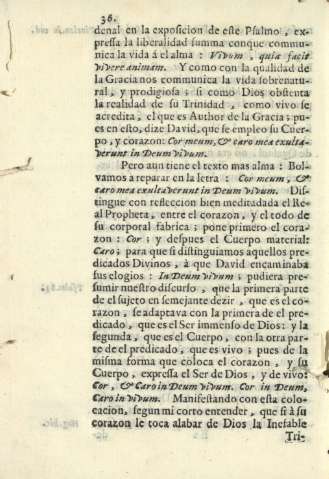 36.
denal en la exposicion de este Psalmo, ex-
pressa la liberalidad summa conque commu-
nica la vida á el alma: Vivum, quia facit
vivere animam. Y como con la qualidad de
la Gracia nos communica la vida sobrenatu-
ral, y prodigiosa; si como Dios obstenta
la realidad de su Trinidad, como vivo se
acredita, el que es Author de la Gracia; pu-
es en esto, dize David, que se empleo su Cuer-
po, y corazon: Cor meum, & caro mea exulta-
verunt in Deum vivum.
Pero aun tiene el texto mas alma: Bol-
vamos a reparar en la letra: Cor meum, &
caro mea exultaverunt in Deum vivum. Dis-
tingue con refleccion bien meditadada el Re-
al Propheta, entre el corazon, y el todo de
su corporal fabrica; pone primero el cora-
zon: Cor; y despues el Cuerpo material:
Caro; para que distinguiamos aquellos pre-
dicados Divinos, à que David encaminaba
sus elogios: In Deum vivum; pudiera pre-
sumir nuestro discurso, que la primera parte
de el sujeto en semejante dezir, que es el co-
razon, se adaptava con la primera de el pre-
dicado, que es el Ser immenso de Dios: y la
segunda, que es el Cuerpo, con la otra par-
te de el predicado, que es vivo; pues de la
misma forma que coloca el corazon, y su
Cuerpo, expressa el Ser de Dios, y de vivo:
Cor, & Caro in Deum vivum. Cor in Deum,
Caro in vivum. Manifestando con esta colo-
cacion, segun mi corto entender, que si à su
corazon le toca alabar de Dios la Inefable
Tri-